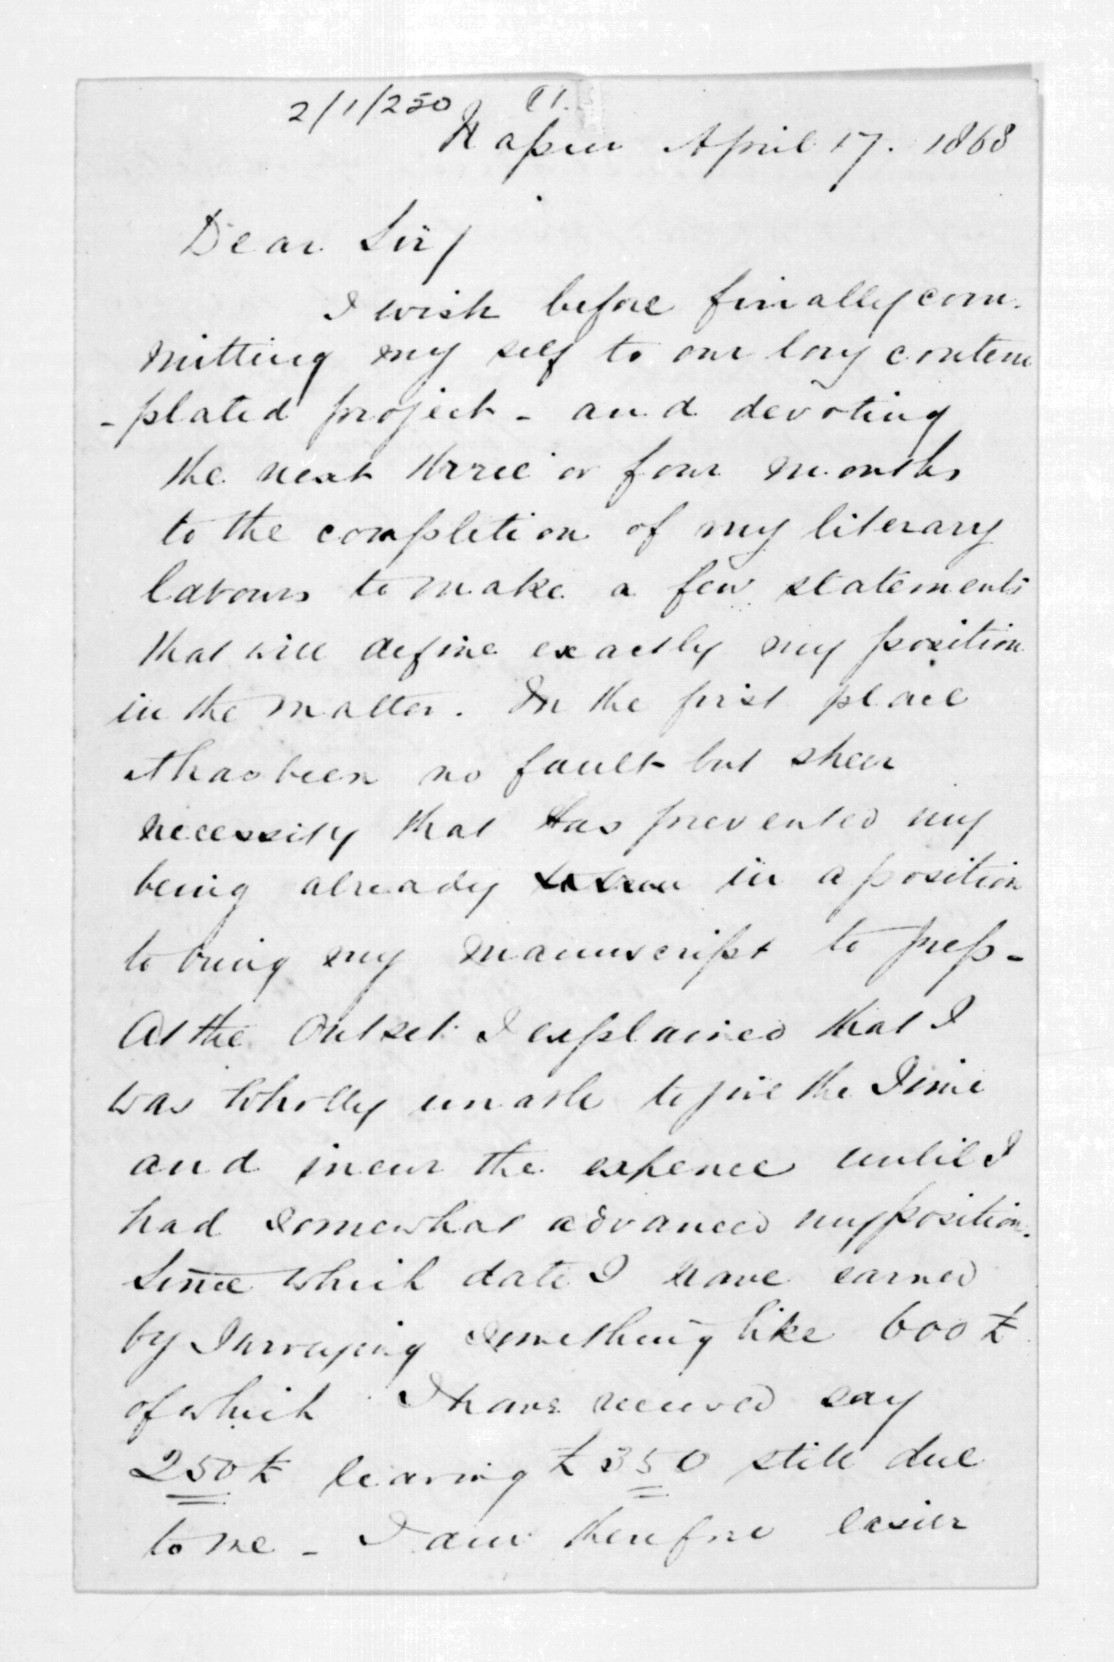 2/1/250 (1.
Napier April 17. 1868
Dear Sir/
I wish before finally com-
mitting my self to our long contem
-plated project - and devoting
the next three or four months
to the completion of my literary
labours to make a few statements
that will define exactly my position
in the matter. In the first place
it has been no fault but sheer
necessity that has prevented my
being already in a position
to bring my manuscript to press -
At the outset I explained that I
was wholly unable to give the time
and incur the expence until I
had somewhat advanced my position.
Since which date I have earned
by Surveying something like 600 £
of which I have received say
250 £ leaving £ 350 still due
to me - I am therefore easier